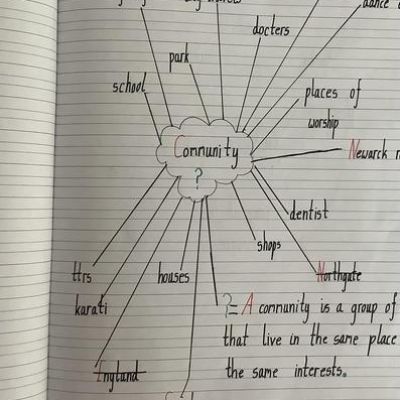 docters
park
school
places of
worship
Community
?
Newarck
dentist
shops
Northgate
ttrs
houses
karati
England
?= A community is a group of
that live in the same place
the same interests.